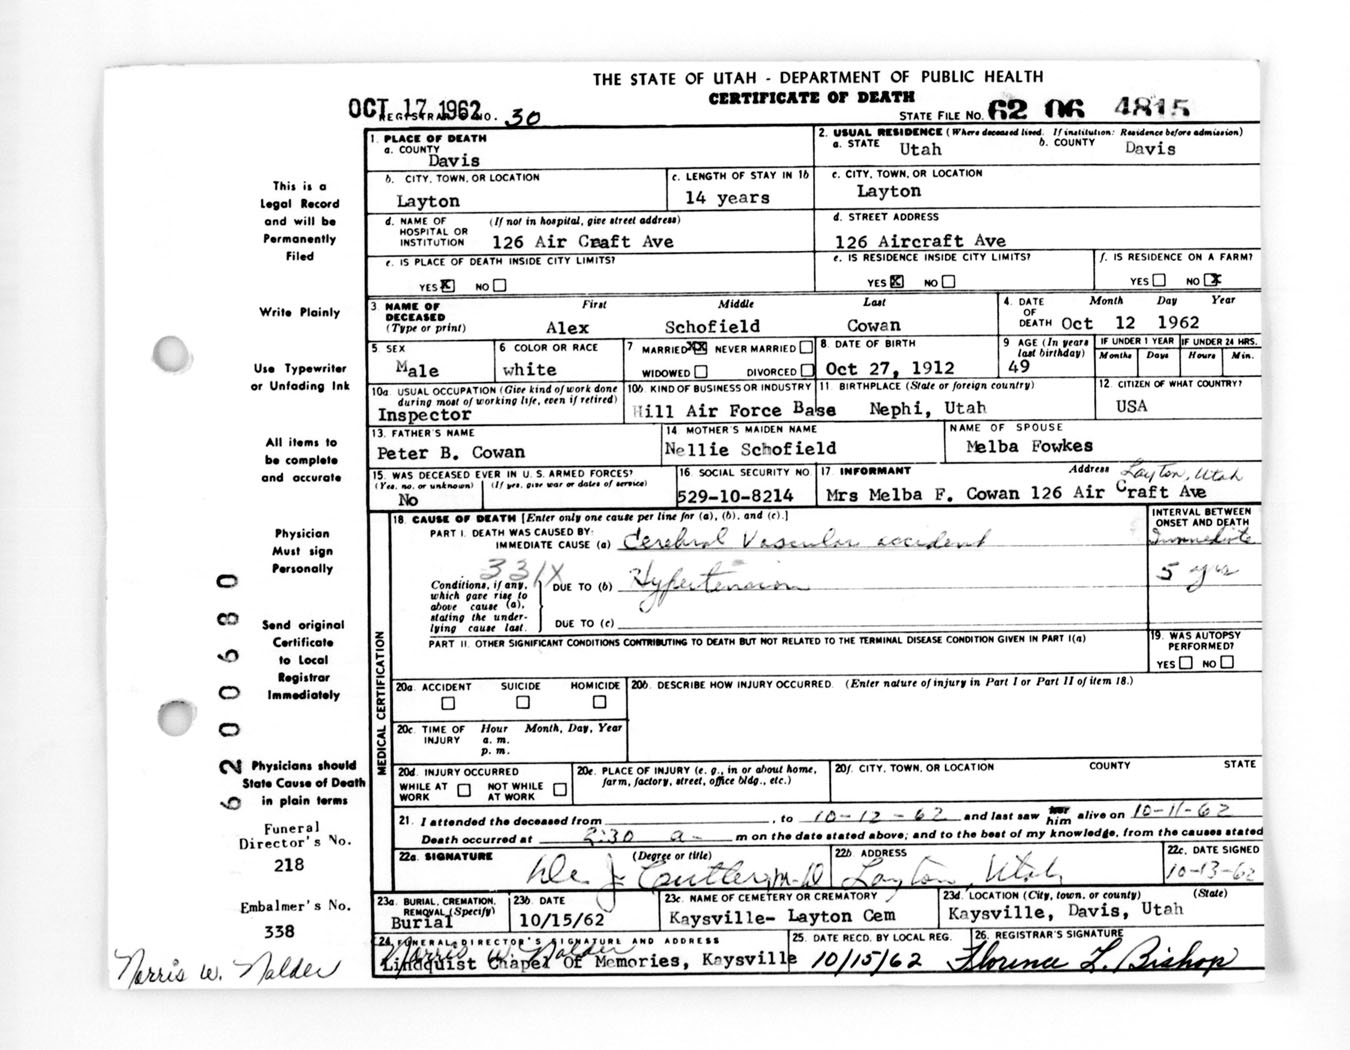 THE STATE OF UTAH - DEPARTMENT OF PUBLIC HEALTH
CERTIFICATE OF DEATH
OCT 17 1962
REGISTRAR'S NO. 30
STATE FILE NO. 62 06 4815
1. PLACE OF DEATH
a. COUNTY
Davis
2. USUAL RESIDENCE (Where deceased lived. If institution: Residence before admission)
a. STATE Utah b. COUNTY Davis
b. CITY, TOWN, OR LOCATION
Layton
c. LENGTH OF STAY IN 1b
14 years
c. CITY, TOWN, OR LOCATION
Layton
d. NAME OF HOSPITAL OR INSTITUTION (If not in hospital, give street address)
126 Air Craft Ave
d. STREET ADDRESS
126 Aircraft Ave
e. IS PLACE OF DEATH INSIDE CITY LIMITS?
YES X NO
e. IS RESIDENCE INSIDE CITY LIMITS?
YES X NO
f. IS RESIDENCE ON A FARM?
YES NO X
3 NAME OF DECEASED (Type or print)
First Middle Last
Alex Schofield Cowan
4. DATE OF DEATH Month Day Year
Oct 12 1962
5. SEX
Male
6 COLOR OR RACE
white
7 MARRIED XX NEVER MARRIED
WIDOWED DIVORCED
8. DATE OF BIRTH
Oct 27, 1912
9 AGE (In years last birthday)
49
IF UNDER 1 YEAR IF UNDER 24 HRS.
Months Days Hours Min.
10a. USUAL OCCUPATION (Give kind of work done during most of working life, even if retired)
Inspector
10b. KIND OF BUSINESS OR INDUSTRY
Hill Air Force Base
11. BIRTHPLACE (State or foreign country)
Nephi, Utah
12. CITIZEN OF WHAT COUNTRY?
USA
13. FATHER'S NAME
Peter B. Cowan
14 MOTHER'S MAIDEN NAME
Nellie Schofield
NAME OF SPOUSE
Melba Fowkes
15. WAS DECEASED EVER IN U.S. ARMED FORCES?
(Yes, no, or unknown) (If yes, give war or dates of service)
No
16. SOCIAL SECURITY NO
529-10-8214
17 INFORMANT Address Layton, Utah
Mrs Melba F. Cowan 126 Air Craft Ave
MEDICAL CERTIFICATION
18. CAUSE OF DEATH [Enter only one cause per line for (a), (b), and (c).]
PART I. DEATH WAS CAUSED BY:
IMMEDIATE CAUSE (a) Cerebral Vascular accident
INTERVAL BETWEEN ONSET AND DEATH
Immediate
331X
Conditions, if any, which gave rise to above cause (a), stating the underlying cause last.
DUE TO (b) Hypertension
5 yrs
DUE TO (c)
PART II. OTHER SIGNIFICANT CONDITIONS CONTRIBUTING TO DEATH BUT NOT RELATED TO THE TERMINAL DISEASE CONDITION GIVEN IN PART I(a)
19. WAS AUTOPSY PERFORMED?
YES NO
20a. ACCIDENT SUICIDE HOMICIDE
20b. DESCRIBE HOW INJURY OCCURRED. (Enter nature of injury in Part I or Part II of item 18.)
20c. TIME OF INJURY Hour Month, Day, Year
a. m.
p. m.
20d. INJURY OCCURRED
WHILE AT WORK NOT WHILE AT WORK
20e. PLACE OF INJURY (e. g., in or about home, farm, factory, street, office bldg., etc.)
20f. CITY, TOWN, OR LOCATION COUNTY STATE
21. I attended the deceased from , to 10-12-62 and last saw him alive on 10-11-62
Death occurred at 2:30 a- m on the date stated above; and to the best of my knowledge, from the causes stated
22a. SIGNATURE (Degree or title)
J. Cutler, M-D
22b. ADDRESS
Layton, Utah
22c. DATE SIGNED
10-13-62
23a. BURIAL, CREMATION, REMOVAL (Specify)
Burial
23b. DATE
10/15/62
23c. NAME OF CEMETERY OR CREMATORY
Kaysville- Layton Cem
23d. LOCATION (City, town, or county) (State)
Kaysville, Davis, Utah
24. FUNERAL DIRECTOR'S SIGNATURE AND ADDRESS
Norris W. Nalder
Lindquist Chapel Of Memories, Kaysville
25. DATE RECD. BY LOCAL REG.
10/15/62
26. REGISTRAR'S SIGNATURE
Florence L. Bishop
This is a
Legal Record
and will be
Permanently
Filed
Write Plainly
Use Typewriter
or Unfading Ink
All items to
be complete
and accurate
Physician
Must sign
Personally
Send original
Certificate
to Local
Registrar
Immediately
Physicians should
State Cause of Death
in plain terms
Funeral
Director's No.
218
Embalmer's No.
338
Norris W. Nalder
62 00680